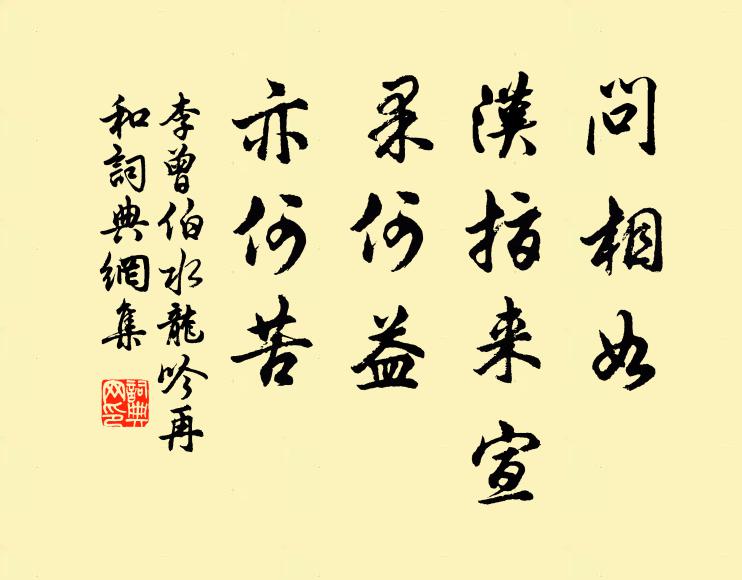 問相如
漢指来宣
果何益
亦何苦
李曾伯水龍吟再
和詞典網集
詞典网印